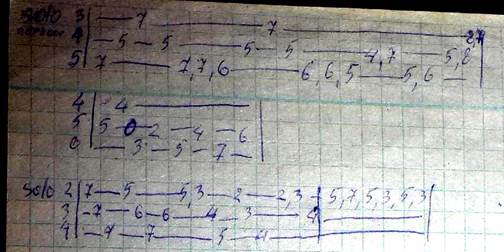 solo 3 — 7 ——— 7 ——— 2,7
первое 4 — 5 — 5 —— 5 — 5 —— 4,7 — 5,8
5 7 —— 7,7,6 —— 6,6,5 — 5,6 —
4 - 4 ————
5 5 - 0 - 2 — 4 — 6
6 — 3 — 5 — 7 —
solo 2 7 — 5 — 5,3 — 2 — 2,3 - 5,7,5,3,5,3
3 -7 — 6 - 6 — 4 — 3 — 4
4 - 7 — 5 —